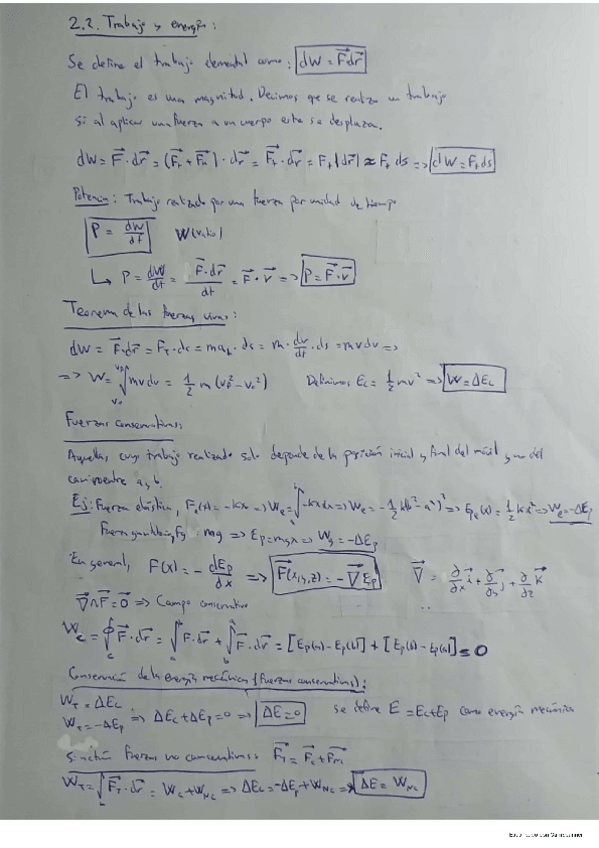 2.2. Trabajo y energía:
Se define el trabajo elemental como: dW = F⃗·dr⃗
El trabajo es una magnitud. Decimos que se realiza un trabajo
si al aplicar una fuerza a un cuerpo este se desplaza.
dW = F⃗·dr⃗ = (F⃗t + F⃗n)·dr⃗ = F⃗t·dr⃗ = Ft|dr⃗| ≈ Ft ds => dW = Ft ds
Potencia: Trabajo realizado por una fuerza por unidad de tiempo
P = dW/dt W (vatio)
↳ P = dW/dt = F⃗·dr⃗/dt = F⃗·v⃗ => P = F⃗·v⃗
Teorema de las fuerzas vivas:
dW = F⃗·dr⃗ = FT·ds = mat·ds = m·dv/dt·ds = mv dv =>
=> W = ∫ mv dv = 1/2 m (vF² - vo²) Definimos Ec = 1/2 mv² => W = ΔEc
Fuerzas conservativas:
Aquellas, cuyo trabajo realizado solo depende de la posición inicial y final del móvil y no del
camino entre a y b.
Ej: Fuerza elástica, Fe(x) = -kx => We = ∫ -kx dx => We = -1/2 k(b² - a²) => Epe(x) = 1/2 kx² => We = -ΔEp
mg => Ep = mgx => Wg = -ΔEp
En general, F(x) = - dEp/dx => F⃗(x,y,z) = -∇⃗Ep ∇⃗ = ∂/∂x i⃗ + ∂/∂y j⃗ + ∂/∂z k⃗
∇⃗∧F⃗ = 0⃗ => Campo conservativo
Wc = ∮c F⃗·dr⃗ = ∫ F⃗·dr⃗ + ∫ F⃗·dr⃗ = [Ep(a) - Ep(b)] + [Ep(b) - Ep(a)] = 0
Conservación de la energía mecánica (fuerzas conservativas):
WT = ΔEc
WT = -ΔEp => ΔEc + ΔEp = 0 => ΔE = 0 se define E = Ec + Ep como energía mecánica
Si actúan fuerzas no conservativas: F⃗T = F⃗c + F⃗nc
WT = ∫ F⃗T·dr⃗ = Wc + WNc => ΔEc = -ΔEp + WNc => ΔE = WNc